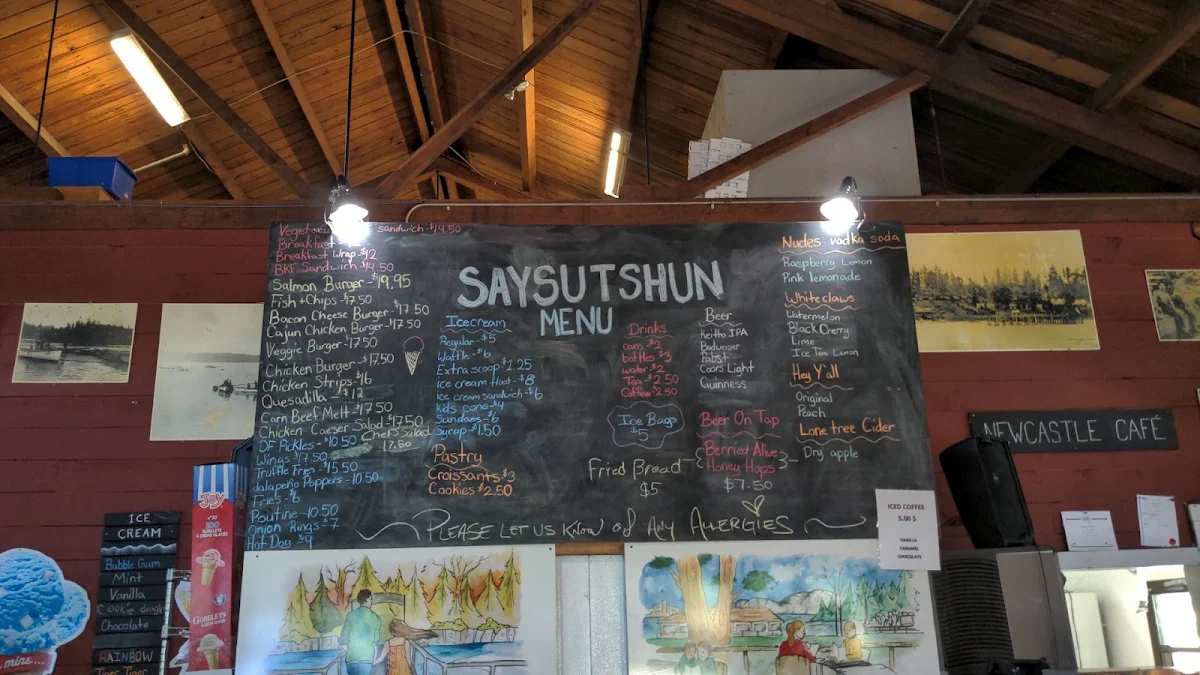 sandwich - $14.50
Breakfast
Breakfast Wrap - $12
BKF Sandwich - $14.50
Salmon Burger - $19.95
Fish + Chips - $17.50
Bacon Cheese Burger - $17.50
Cajun Chicken Burger - $17.50
Veggie Burger - $17.50
Chicken Burger - $17.50
Chicken Strips - $16
Quesadilla - $12
Corn Beef Melt - $17.50
Chicken Caeser Salad - $17.50
Chef Salad
17.50
DF Pickles - $10.50
Wings - $17.50
Truffle Fries - $15.50
Jalapeño Poppers - 10.50
Fries - $6
Poutine - 10.50
Onion Rings - $7
Hot Dog - $9
SAYSUTSHUN
MENU
Icecream
Regular - $5
Waffle - $6
Extra scoop $1.25
Ice cream float - $8
Ice cream sandwich - $6
kids cone $4
Sundaes - $6
Syrup - $1.50
Pastry
Croissants $3
Cookies $2.50
Drinks
cans $2
bottles $3
water $2
Tea $2.50
Coffee $2.50
Ice Bags
$5
Fried Bread
$5
Beer
Keith's IPA
Budweiser
Pabst
Coors Light
Guinness
Beer On Tap
Berried Alive
Honey Hops
$7.50
Nudes vodka soda
Raspberry Lemon
Pink lemonade
Whiteclaws
Watermelon
Black Cherry
Lime
Ice Tea Lemon
Hey Y'all
Original
Peach
Lone tree Cider
Dry apple
PLEASE LET US KNOW of ANY ALLERGIES
NEWCASTLE CAFÉ
ICED COFFEE
5.00 $
VANILLA
CARAMEL
CHOCOLATE
ICE
CREAM
Bubble Gum
Mint
Vanilla
Cookie dough
Chocolate
RAINBOW
Tiger Tiger
JOY
100
GOBLETS
mine...